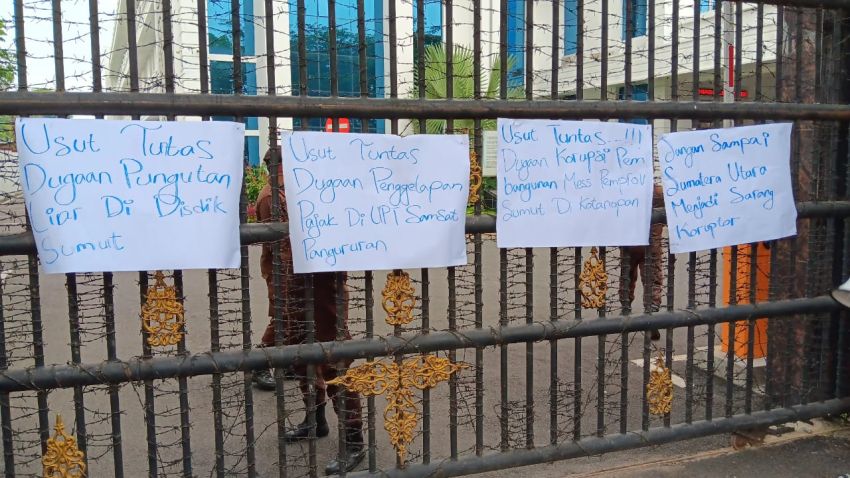 Usut Tutas
Dugaan Pungutan
Liar Di Disdik
Sumut
Usut Tuntas
Dugaan Penggelapan
Pajak Di UPT Samsat
Pangururan
Usut Tuntas...!!!
Dugaan Korupsi Pem
bangunan Mess Pemprov
Sumut Di Kotanopan
Jangan Sampai
Sumatera Utara
Menjadi Sarang
Koruptor